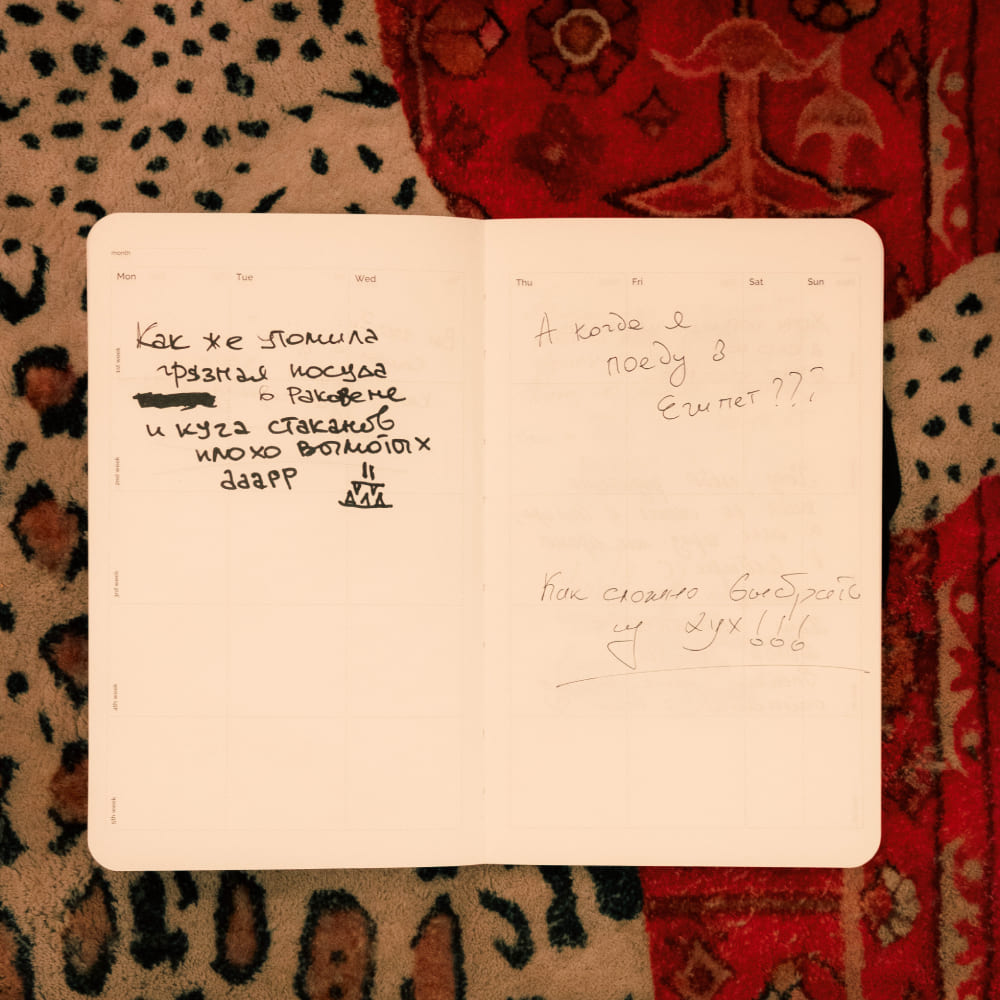 month
Mon Tue Wed
1st week
Как же утомила
грязная посуда
в раковене
и куча стаканов
плохо вымотых
ааарр
2nd week
3rd week
4th week
5th week
Thu Fri Sat Sun
А когда я
поеду в
Египет???
Как сложно выбрать
из двух!!!